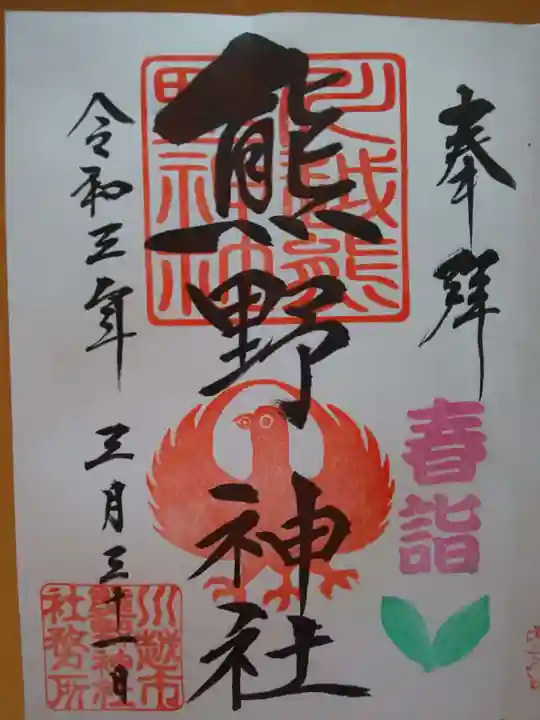 奉拝
春詣
川越熊
野神社
熊野神社
令和三年 三月三十一日
川越市
熊野神社
社務所